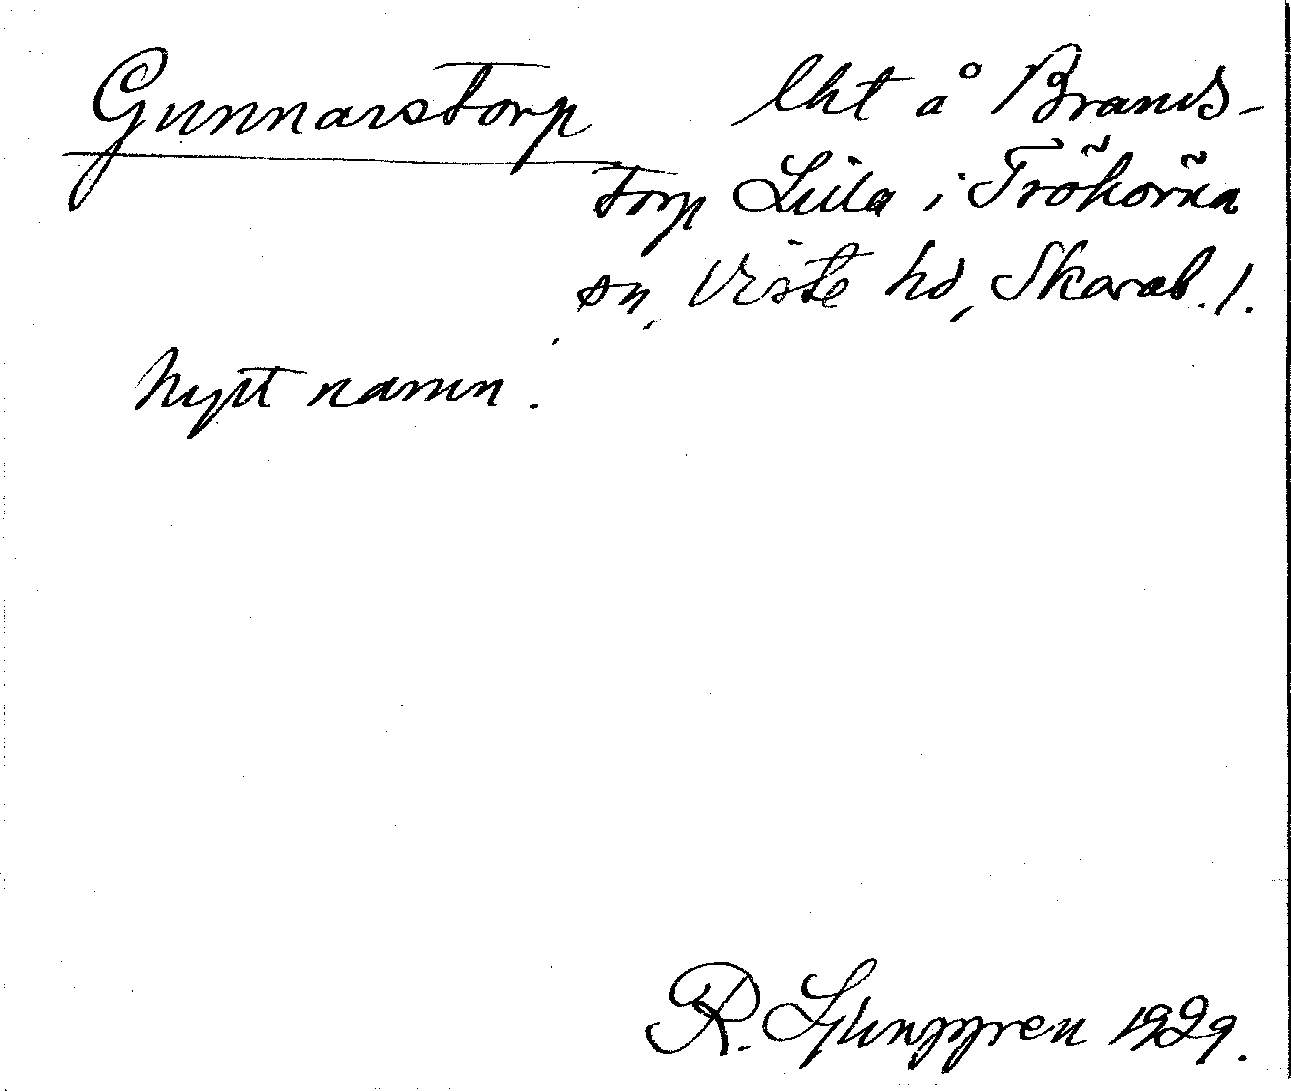 Gunnarstorp lht å Brands-
torp Lilla i Trökörna
sn, Viste hd, Skarab. l.
Nytt namn.
R. Ljunggren 1929.